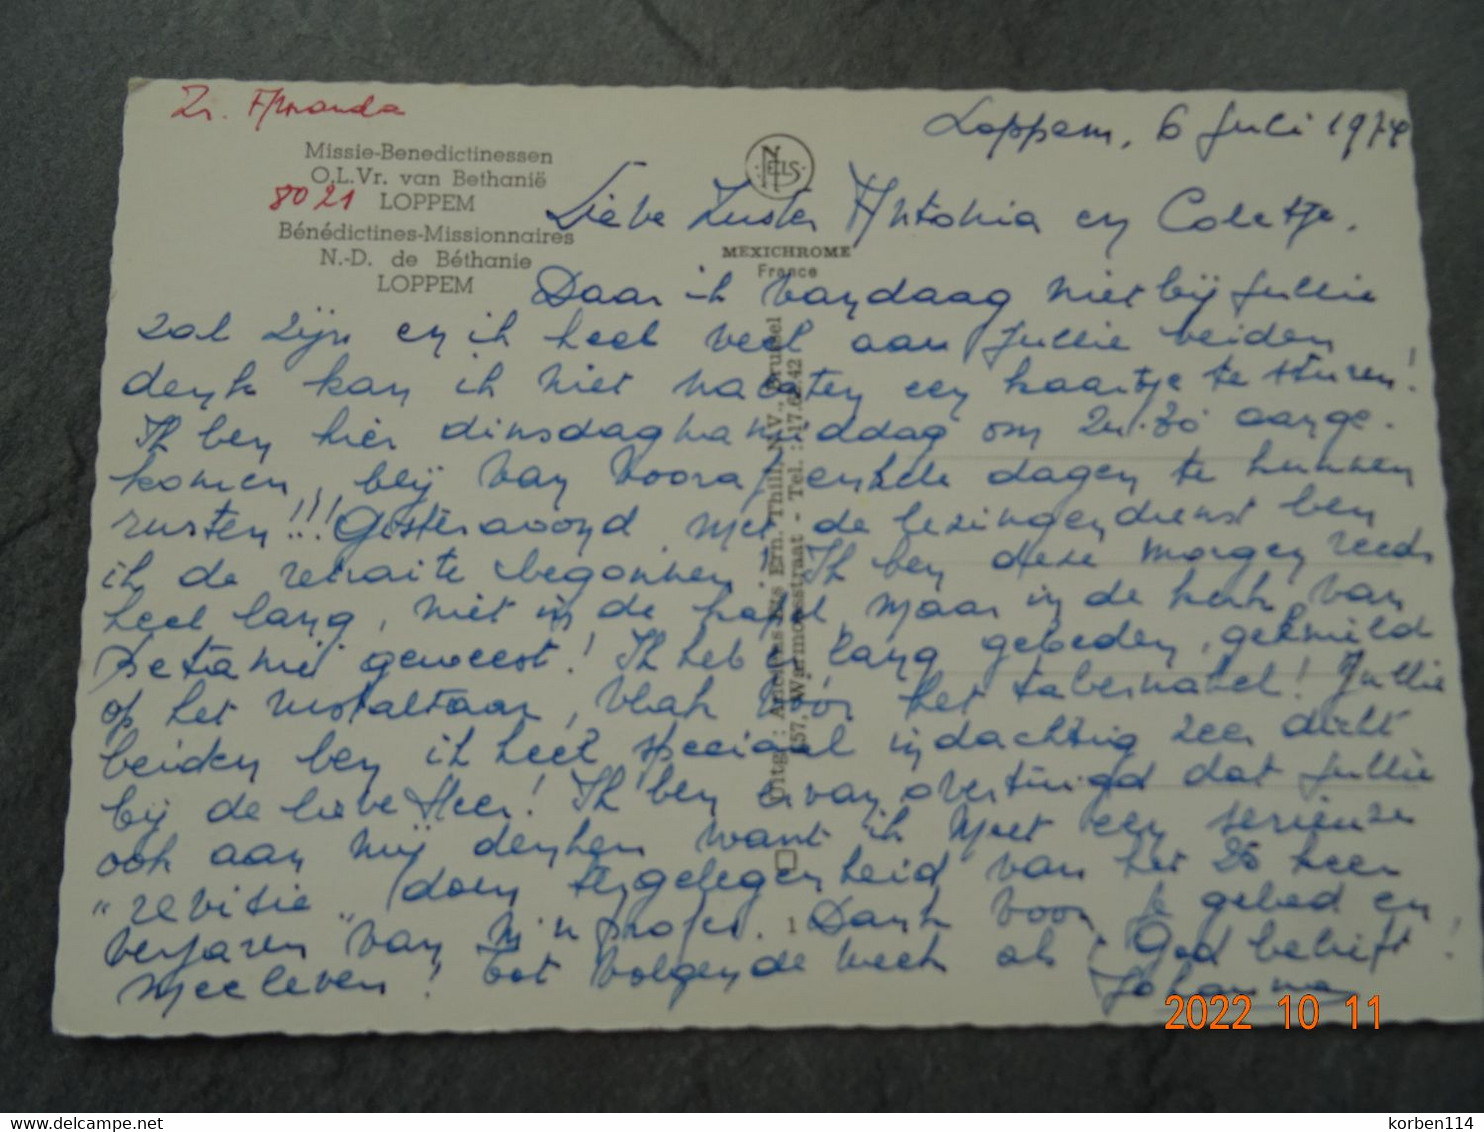 Zr. Amanda
Missie-Benedictinessen
O.L.Vr. van Bethanië
8021 LOPPEM
Bénédictines-Missionnaires
N.-D. de Béthanie
LOPPEM
NELS
MEXICHROME
France
Uitg.: Anciens Ets Ern. Thill, N.V., Brussel
Warmoesstraat - Tel.: 17.62.42
1
Loppem, 6 Juli 1974
Lieve Zuster Antonia en Coletje.
Daar ik vandaag niet bij jullie
zal zijn en ik heel veel aan jullie beiden
denk kan ik niet nalaten een kaartje te sturen!
Ik ben hier dinsdagnamiddag om 2u.30 aange-
komen, blij van vooraf enkele dagen te kunnen
rusten!!! Gisteravond met de lezingendienst ben
ik de retraite begonnen! Ik ben deze morgen reeds
heel lang, niet in de kapel, maar in de kerk van
Betanië geweest! Ik heb lang gebeden, geknield
op het altaar, vlak vóór het tabernakel! Jullie
beiden ben ik heel speciaal indachtig zeer dicht
bij de lieve Heer! Ik ben ervan overtuigd dat jullie
ook aan mij denken want ik moet een serieuze
"revisie" doen ter gelegenheid van het 25 keer
verjaren van m'n profes. Dank voor je gebed en
meeleven! Tot volgende week als God belieft!
Johanna
2022 10 11
korben114